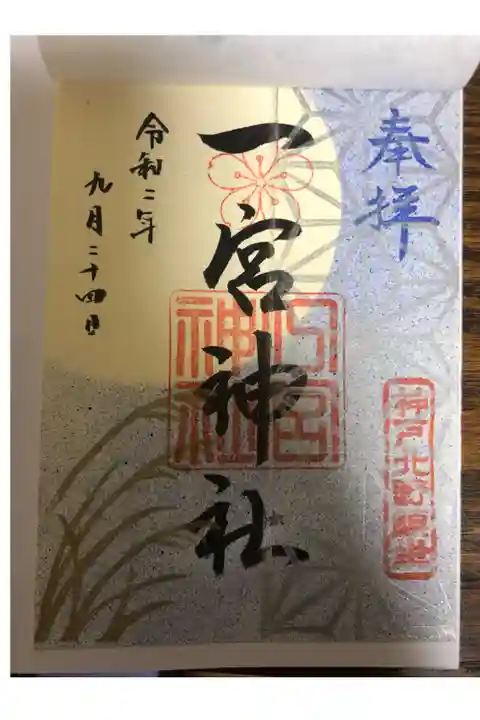 奉拝
一宮神社
一宮神社
神戸北野鎮座
令和二年
九月二十四日